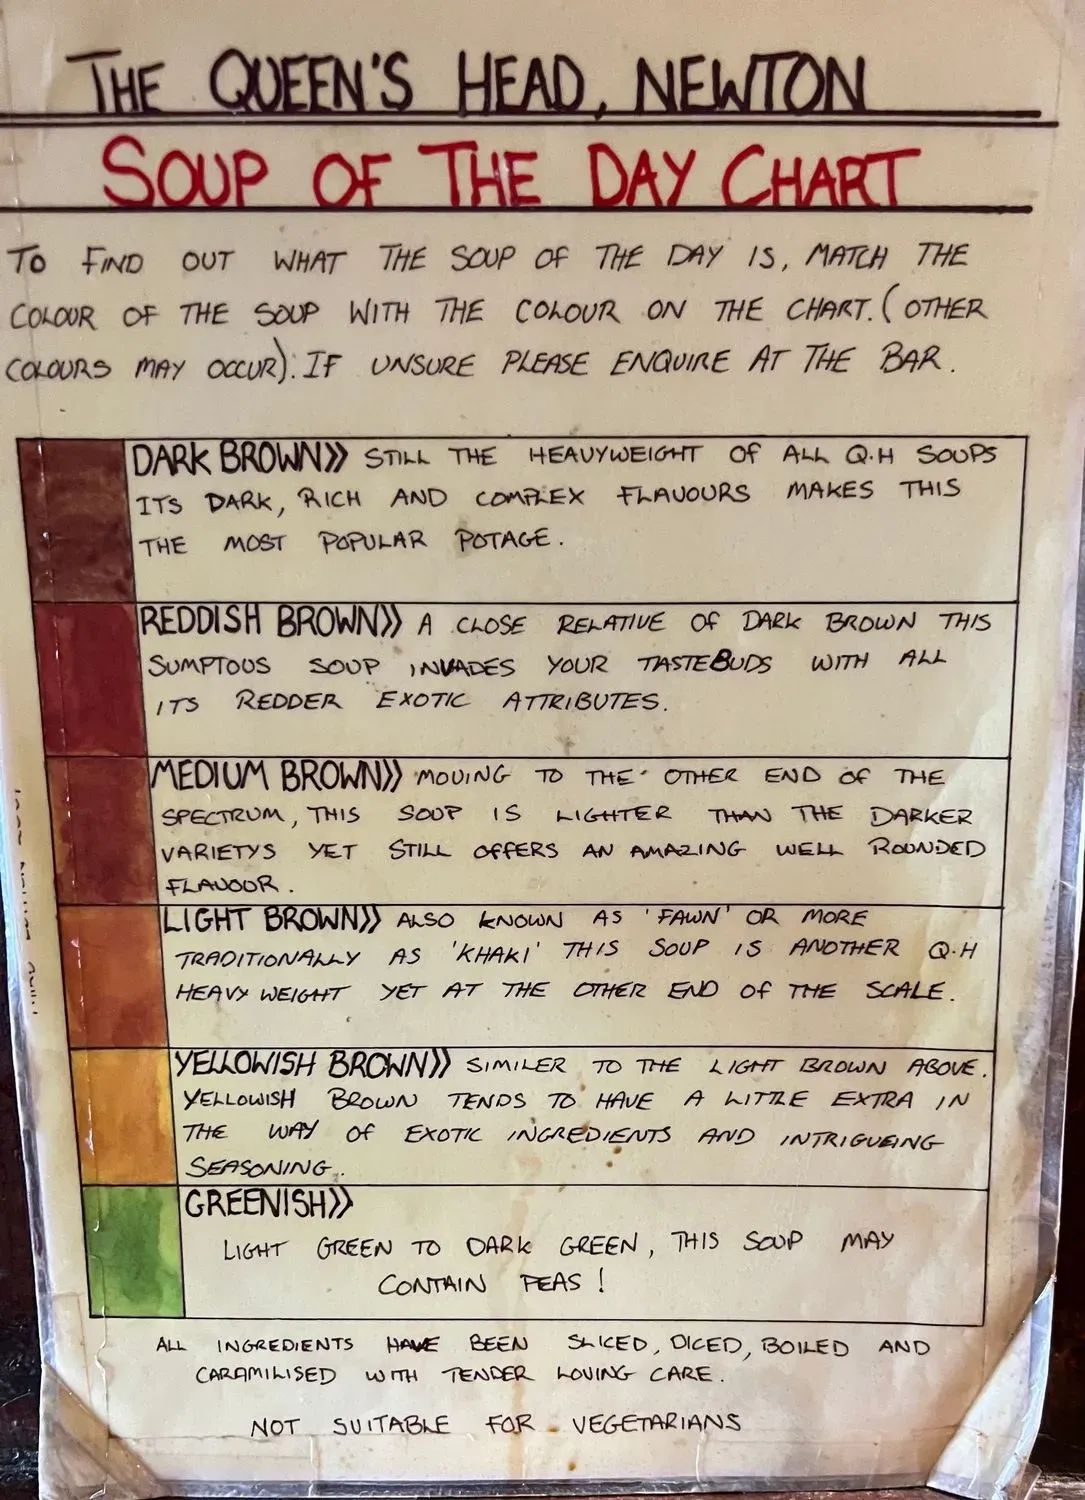 THE QUEEN'S HEAD, NEWTON
SOUP OF THE DAY CHART
TO FIND OUT WHAT THE SOUP OF THE DAY IS, MATCH THE
COLOUR OF THE SOUP WITH THE COLOUR ON THE CHART. (OTHER
COLOURS MAY OCCUR). IF UNSURE PLEASE ENQUIRE AT THE BAR.
DARK BROWN» STILL THE HEAVYWEIGHT OF ALL Q.H SOUPS
ITS DARK, RICH AND COMPLEX FLAVOURS MAKES THIS
THE MOST POPULAR POTAGE.
REDDISH BROWN» A CLOSE RELATIVE OF DARK BROWN THIS
SUMPTOUS SOUP INVADES YOUR TASTEBUDS WITH ALL
ITS REDDER EXOTIC ATTRIBUTES.
MEDIUM BROWN» MOVING TO THE OTHER END OF THE
SPECTRUM, THIS SOUP IS LIGHTER THAN THE DARKER
VARIETYS YET STILL OFFERS AN AMAZING WELL ROUNDED
FLAVOOR.
LIGHT BROWN» ALSO KNOWN AS 'FAWN' OR MORE
TRADITIONALLY AS 'KHAKI' THIS SOUP IS ANOTHER Q.H
HEAVY WEIGHT YET AT THE OTHER END OF THE SCALE.
YELLOWISH BROWN» SIMILER TO THE LIGHT BROWN ABOVE.
YELLOWISH BROWN TENDS TO HAVE A LITTLE EXTRA IN
THE WAY OF EXOTIC INGREDIENTS AND INTRIGUEING
SEASONING.
GREENISH»
LIGHT GREEN TO DARK GREEN, THIS SOUP MAY
CONTAIN PEAS!
ALL INGREDIENTS HAVE BEEN SLICED, DICED, BOILED AND
CARAMILISED WITH TENDER LOVING CARE.
NOT SUITABLE FOR VEGETARIANS